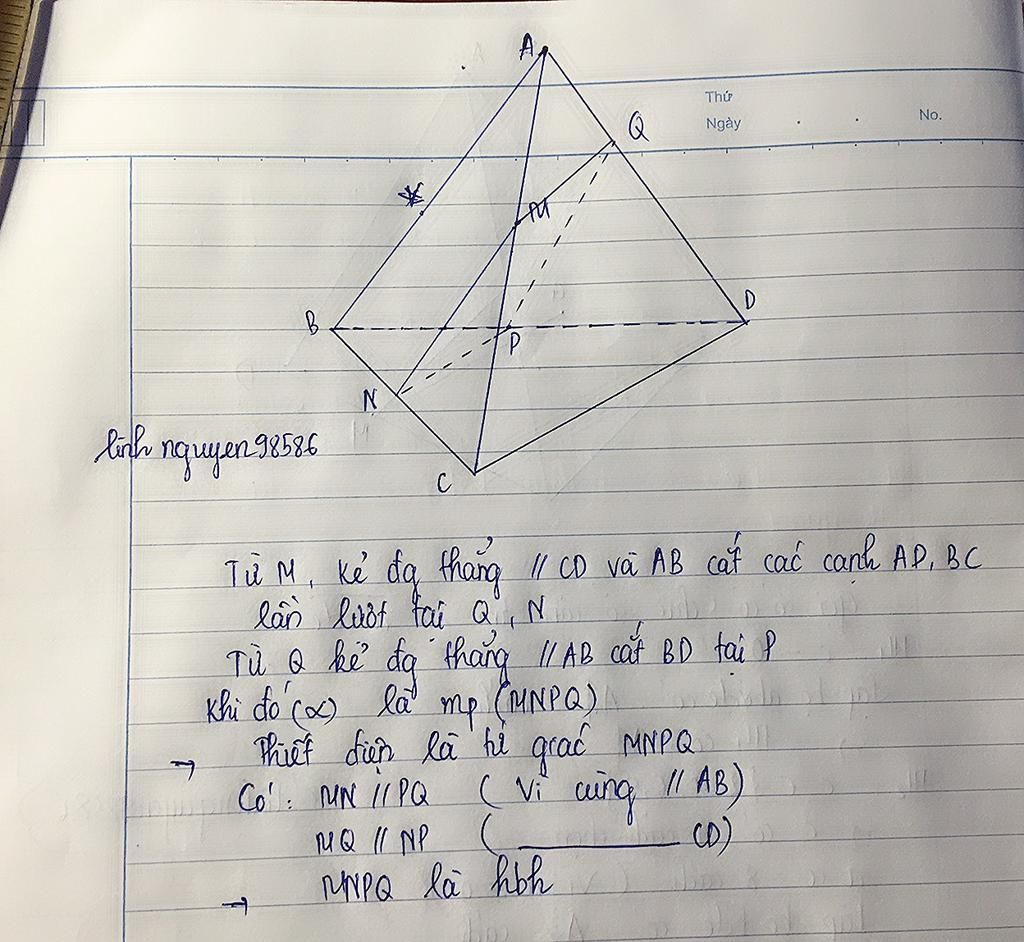 A
Thứ
Q
Ngày
No.
M
B
D
P
N
linh nguyen98586
C
Từ M, kẻ đg thẳng // CD và AB cắt các cạnh AD, BC
lần lượt tại Q, N
Từ Q kẻ đg thẳng // AB cắt BD tại P
Khi đó (α) là mp (MNPQ)
→ Thiết diện là tứ giác MNPQ
Có: MN // PQ (Vì cùng // AB)
MQ // NP ( ________ CD)
→ MNPQ là hbh